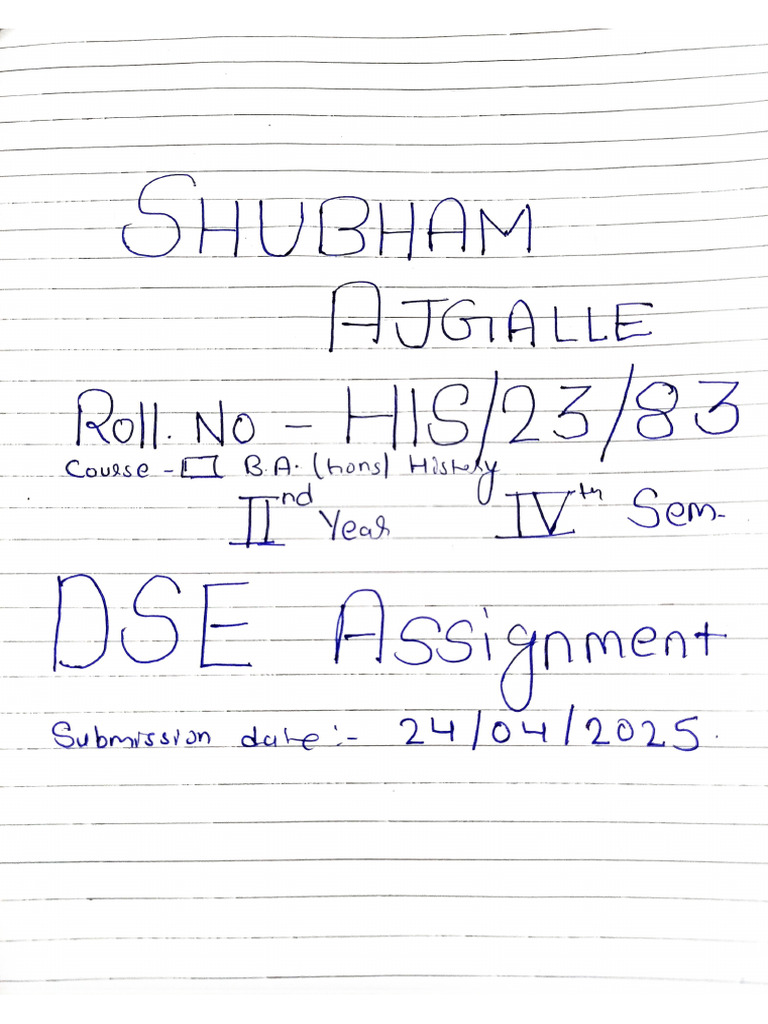 SHUBHAM
AJGALLE
Roll. No - HIS/23/83
Course - B.A. (hons) History
IInd Year IVth Sem.
DSE Assignment
Submission date:- 24/04/2025.